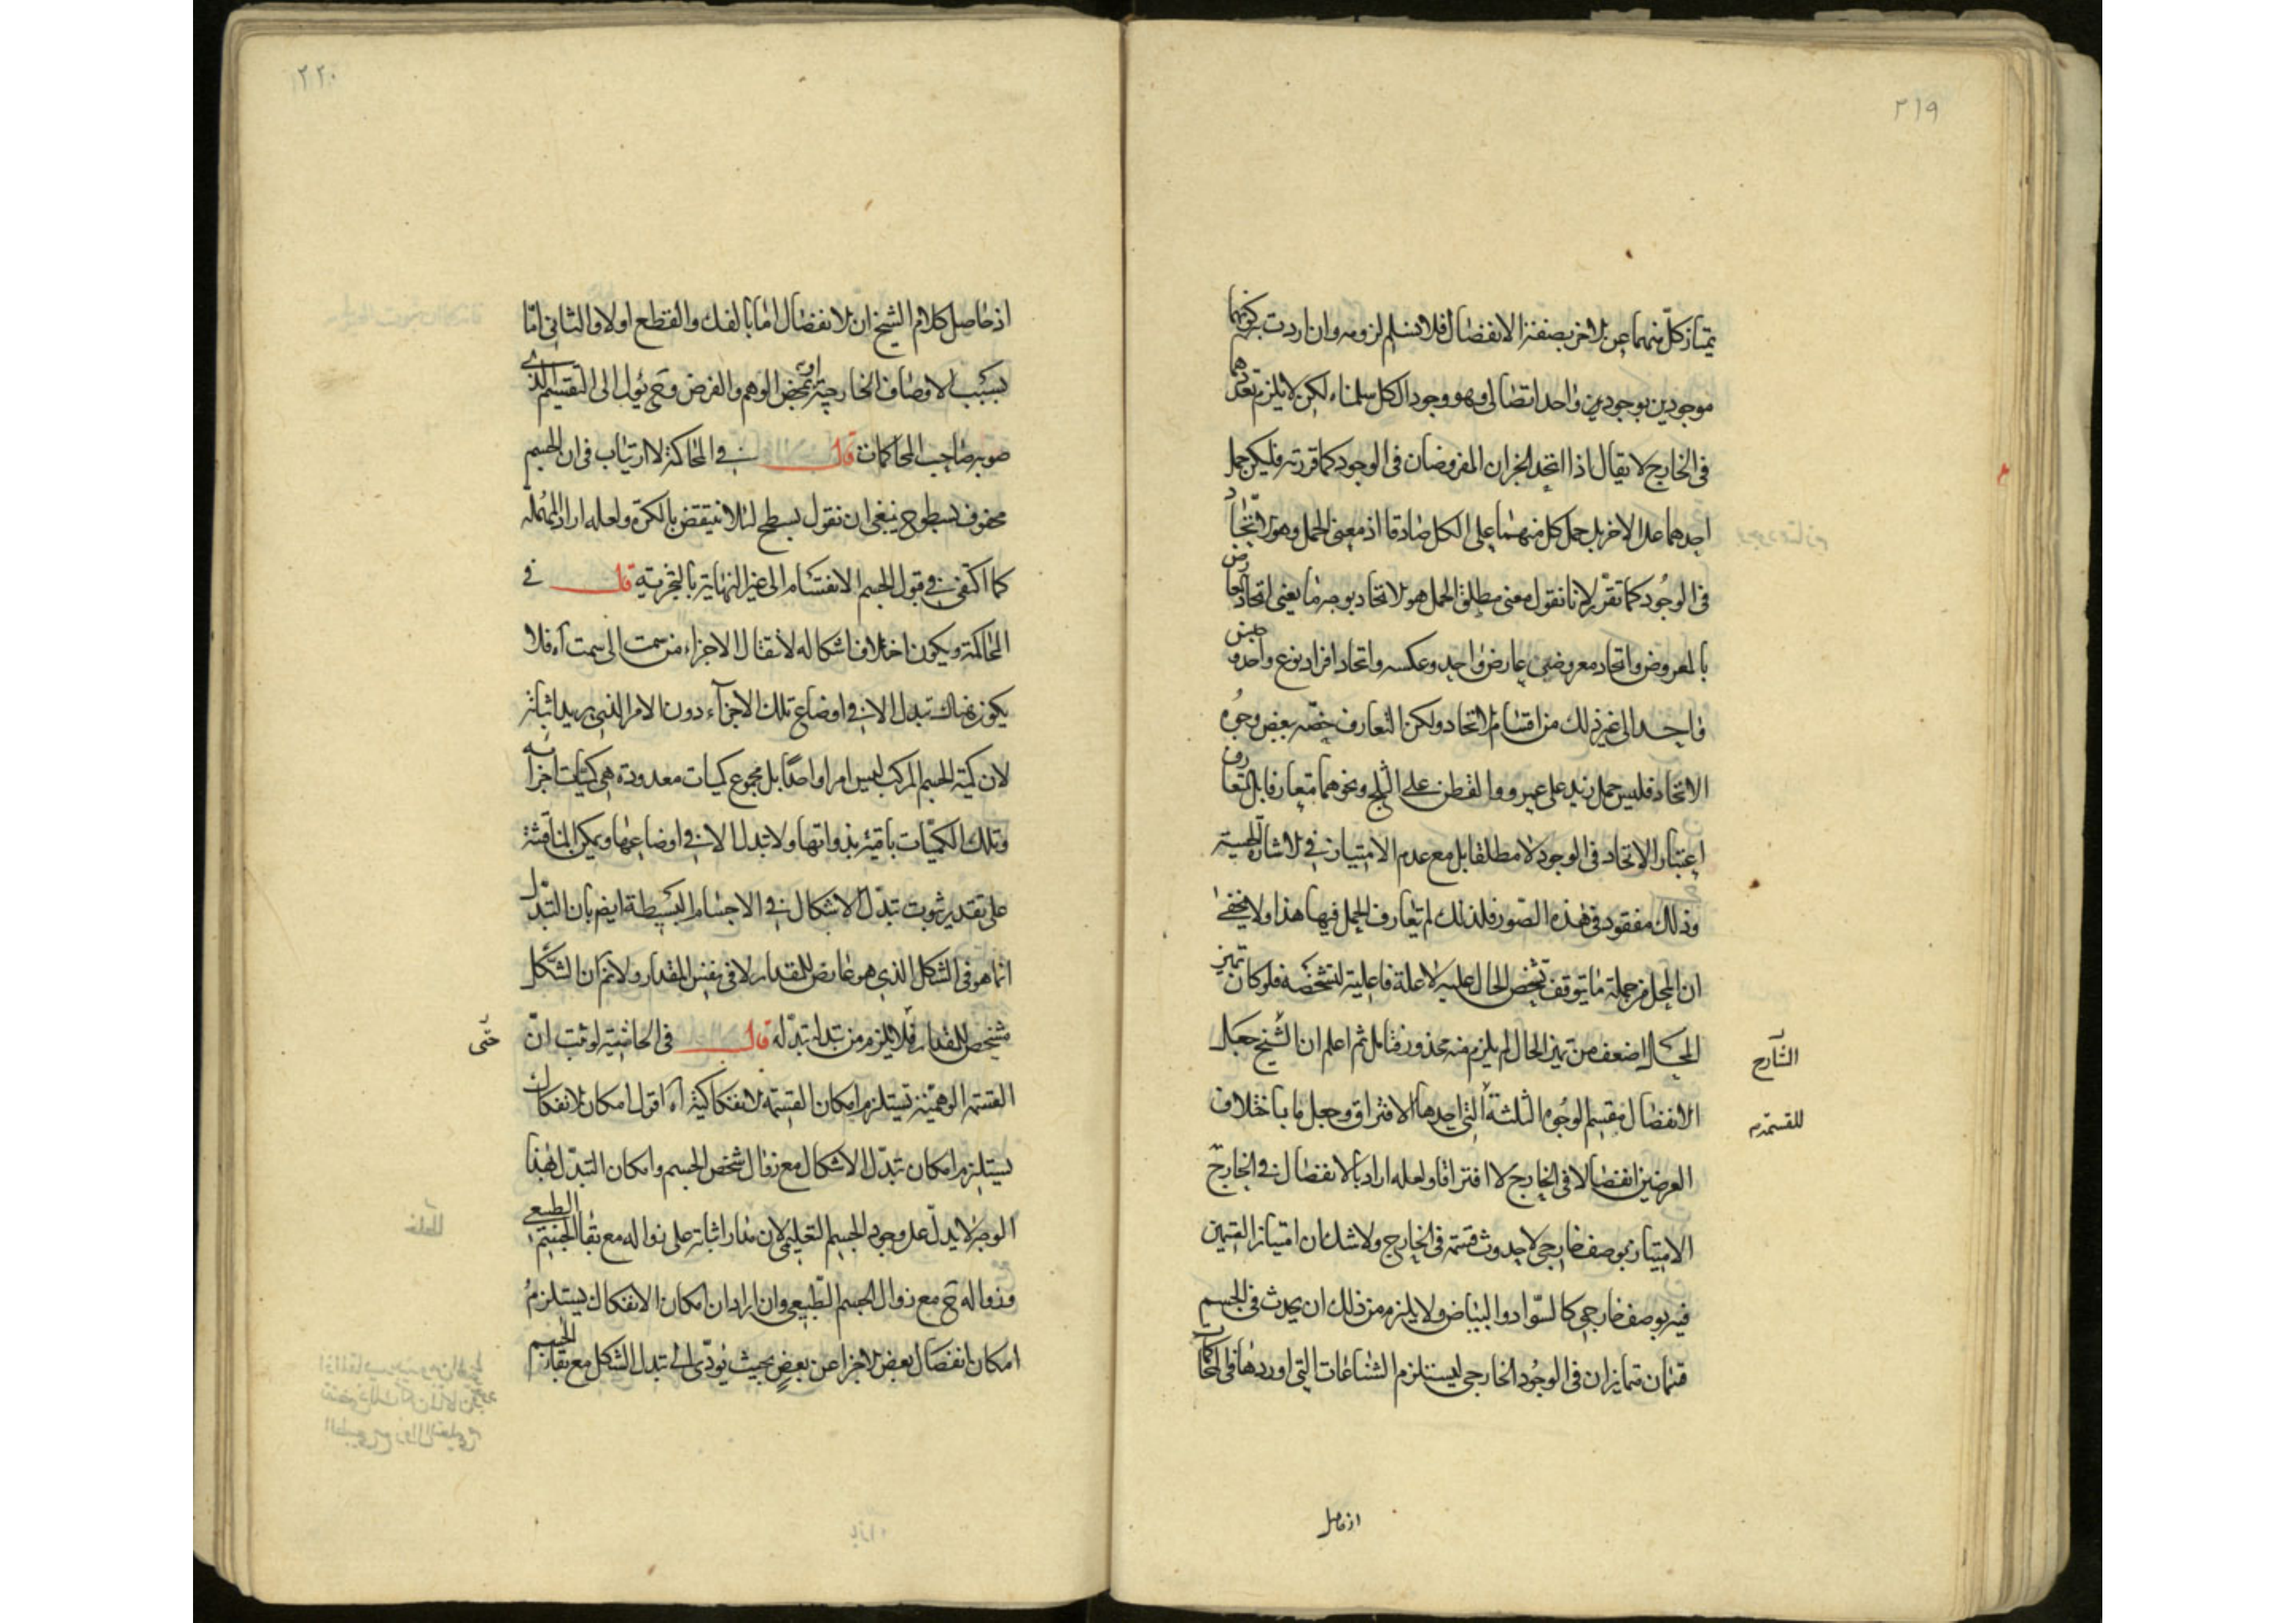 ٢١٩
يمتاز كلّ منهما عن الاخر بصفة الانفضال فلا نسلم لزومه وان اردت كونهما
موجودين بوجودين واحد اتصالى وهو وجود الكل سلمناه لكن لا يلزم تعددهما
فى الخارج لا يقال اذا اتحد الجزان المفروضان فى الوجود كما قررته فليكن حمل
احدهما على الاخر بل حمل كل منهما على الكل صادقا اذ معنى الحمل وهو الاتحاد
فى الوجود كما تقرّر لانا نقول معنى مطلق الحمل هو الاتحاد بوجه ما يعنى اتحاد العارض
بالمعروض واتحاد معروضى عارض واحد وعكسه واتحاد افراد نوع واحد و جنس
واحد الى غير ذلك من اقسام الاتحاد ولكن التعارف خصّه ببعض وجوه
الاتحاد فليس حمل زيد على عمرو والقطن على الثلج ونحوهما متعارفا بل المتعارف
اعتبار الاتحاد فى الوجود لا مطلقا بل مع عدم الامتياز فى الاشارة الحسية
وذلك مفقود فى هذه الصّور فلذلك لم يتعارف الحمل فيها هذا ولا يخفى
ان المحل من جملة ما يتوقف تشخص الحال عليه لا علة فاعلية لتشخصه فلو كان تميز
المحال اضعف من تميز الحال لم يلزم منه محذور فتامل ثم اعلم ان الشيخ جعل
الشارح
الانفصال مقسم الوجوه الثلثة التى احدها الافتراق وجعل ما باختلاف
للقسمة
العرضين انفصالا فى الخارج لا افتراقا ولعله اراد بالانفصال فى الخارج
الامتياز بوصف خارجى لا حدوث قسمة فى الخارج ولا شك ان امتياز القسمين
فيه بوصف خارجى كالسّواد والبياض ولا يلزم من ذلك ان يحدث فى الجسم
قسمان متمايزان فى الوجود الخارجى ليستلزم الشناعات التى اوردها فى المحاكمات
اذ حاصل
٢٢٠
اذ حاصل كلام الشيخ ان الانفصال اما بالفك والقطع اولا والثانى امّا
بسبب الاوصاف الخارجية او بمحض الوهم والفرض وح يؤل الى التقسيم الذى
صوبه صاحب المحاكمات قال فى المحاكمة لا ارتياب فى ان الجسم
محفوف بسطوح ينبغى ان نقول بسطح لئلا ينتقض بالكرة ولعله اراد المهملة
كما اكتفى فى قبول الجسم الانقسام الى غير النهاية بالتجزية قال فى
المحاكمة ويكون اختلاف اشكاله لانتقال الاجزاء من سمت الى سمت آه فلا
يكون هناك تبدل الا فى اوضاع تلك الاجزآء دون الامر الذى يريد اثباته
لان كمية الجسم المركب ليس امرا واحدا بل مجموع كميات معدودة هى كميّات اجزائه
وتلك الكميّات باقية بذواتها ولا تبدل الا فى اوضاعها ويمكن المناقشة
على تقدير ثبوت تبدّل الاشكال فى الاجسام البسيطة ايضا بان التبدّل
انما هو فى الشكل الذى هو عارض للمقدار لا فى نفس المقدار ولانم ان الشكل
مشخص للمقدار فلا يلزم من تبدله تبدّله قال فى الحاشية لو ثبت انّ
حتّى
القسمة الوهميّة تستلزم امكان القسمة الانفكاكية آه اقول امكان الانفكاك
يستلزم امكان تبدّل الاشكال مع زوال شخص الجسم وامكان التبدّل لهذا
الوجه لا يدلّ على وجود الجسم التعليمى لان مدار اثباته على زواله مع بقاء الجسم الطبيعى
وزواله ح مع زوال الجسم الطّبيعى وان اراد ان امكان الانفكاك يستلزم
امكان انفصال بعض الاجزا عن بعض بحيث يؤدّى الى تبدل الشكل مع بقاء الجسم